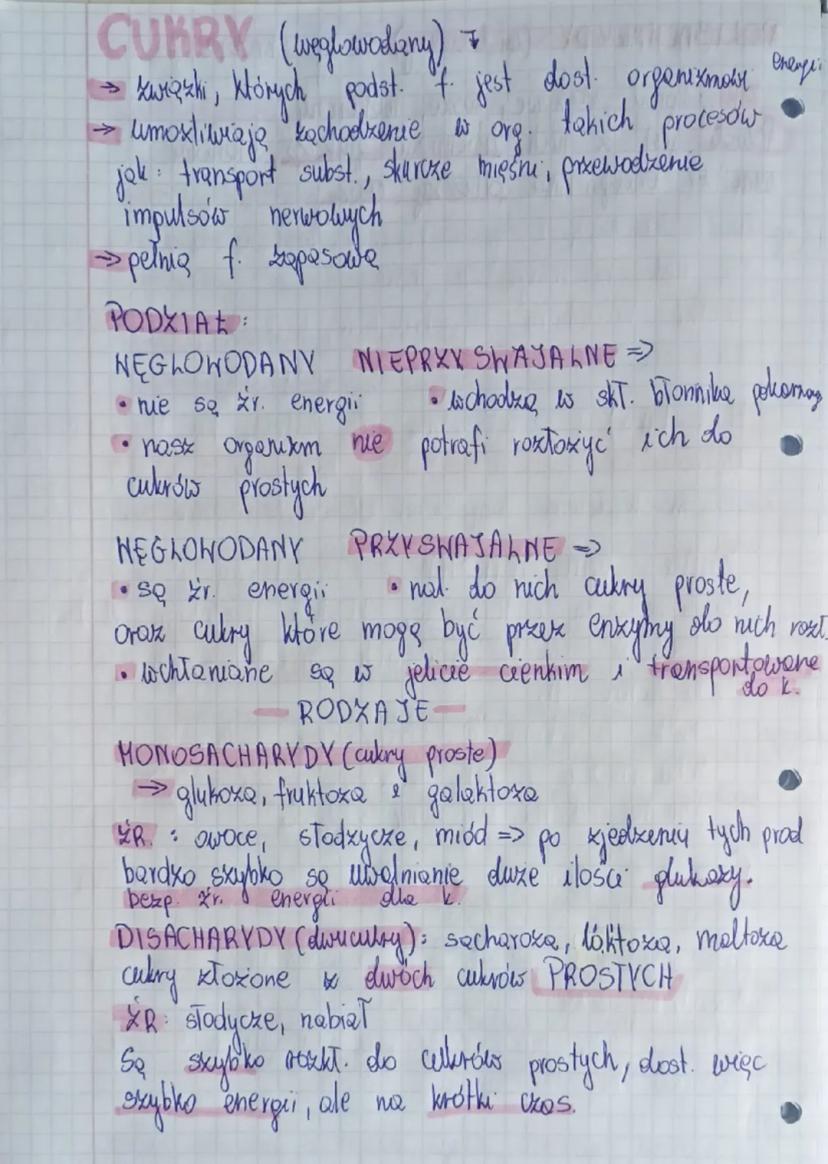 CUKRY (węglowodany) ↴
→ związki, których podst. f. jest dost. organizmowi energii
→ umożliwiają zachodzenie w org. takich procesów
jak: transport subst., skurcze mięśni, przewodzenie
impulsów nerwowych
→ pełnią f. zapasową
PODZIAŁ:
WĘGLOWODANY NIEPRZYSWAJALNE ⇒
• nie są źr. energii • wchodzą w skł. błonnika pokarmow
• nasz organizm nie potrafi rozłożyć ich do
cukrów prostych
WĘGLOWODANY PRZYSWAJALNE ⇒
• są źr. energii • nal. do nich cukry proste,
oraz cukry które mogą być przez enzymy do nich rozł.
• wchłaniane są w jelicie cienkim i transportowane
do k.
— RODZAJE —
MONOSACHARYDY (cukry proste)
→ glukoza, fruktoza i galaktoza
ŹR. : owoce, słodzycze, miód ⇒ po zjedzeniu tych prod
bardzo szybko są uwalnianie duże ilości glukozy.
bezp. źr. energii dla k.
DISACHARYDY (dwucukry): sacharoza, laktoza, maltoza
cukry złożone z dwóch cukrów PROSTYCH
ŹR: słodycze, nabiał
Są szybko rozkł. do cukrów prostych, dost. więc
szybko energii, ale na krótki czas.